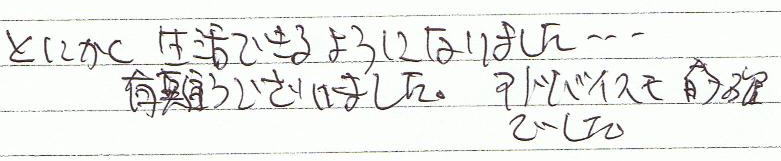 とにかく 生活できるようになりました---
有難うございました。 アドバイスも 的確
でした。